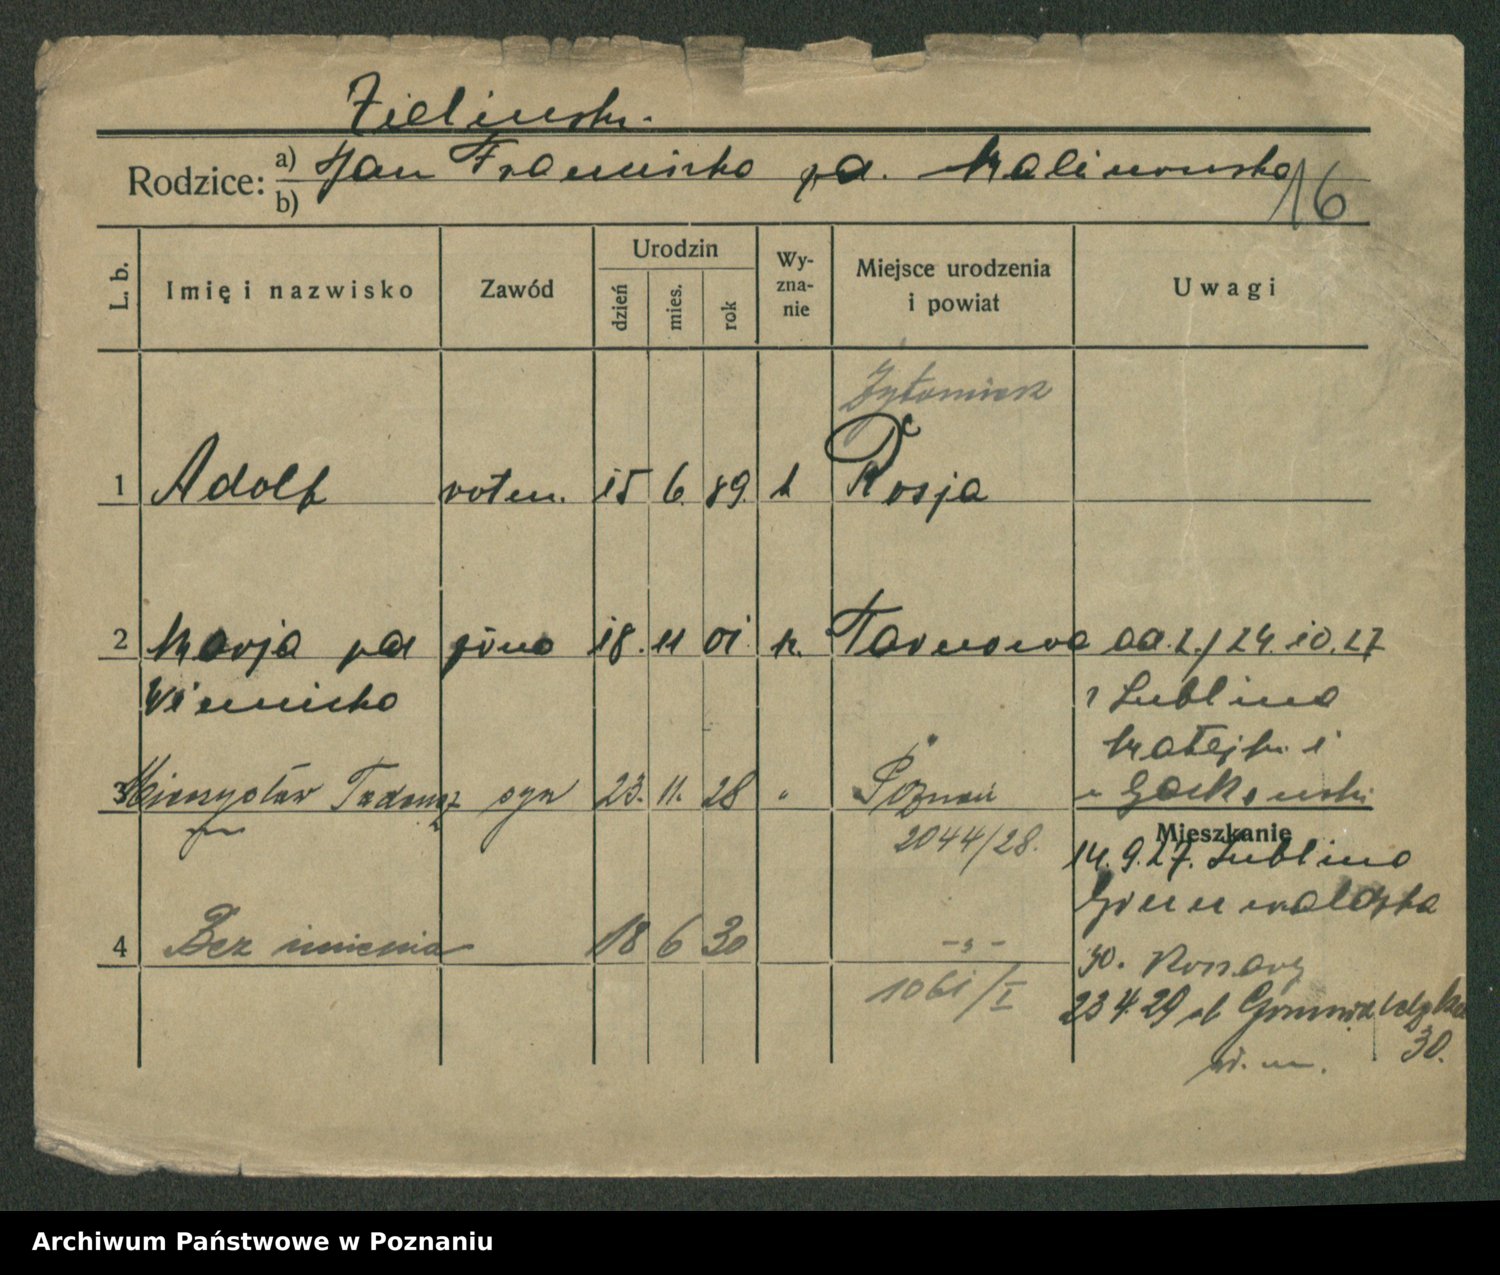 Zielinski.
Rodzice: a) Jan Franciszka pd. Malinowska
b)
16
L. b. Imię i nazwisko Zawód Urodzin dzień mies. rok Wy-zna-nie Miejsce urodzenia i powiat Uwagi
Żytomierz
1 Adolf rotm. 15 6. 89. k Rosja
2 Marja pd żona 18. 11 01. k. Tarnowa 24.10.27
Wiemicka z Lublina
Matejki
3 Mieczysław Tadeusz syn 23. 11. 28 " Poznań
Mieszkanie
2044/28. 14.9.27. Lublina
Grunwaldzka
4 Bez imienia 18 6 30 -"- 30.
1061/I 23 4. 29 Grunwaldzka
30.
Archiwum Państwowe w Poznaniu